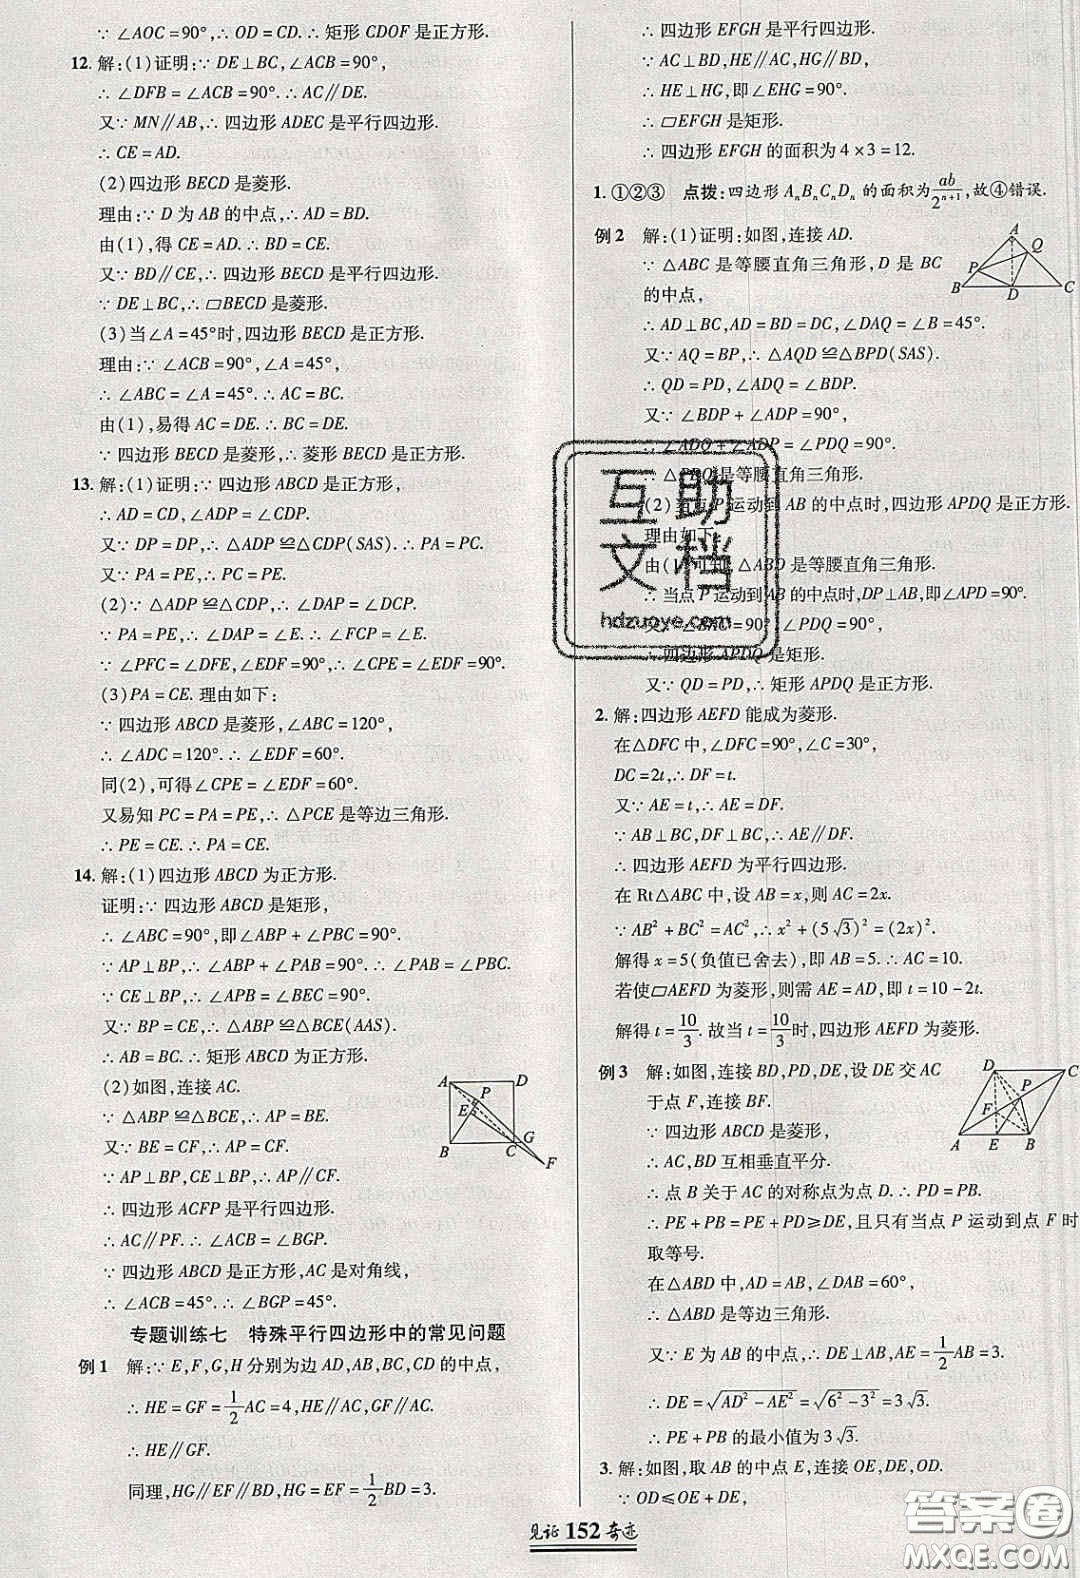 ∵ ∠AOC = 90°,∴ OD = CD.∴ 矩形 CDOF 是正方形.
12. 解:(1)证明:∵ DE⊥BC,∠ACB = 90°,
∴ ∠DFB = ∠ACB = 90°.∴ AC∥DE.
又∵ MN∥AB,∴ 四边形 ADEC 是平行四边形.
∴ CE = AD.
(2)四边形 BECD 是菱形.
理由:∵ D 为 AB 的中点,∴ AD = BD.
由(1),得 CE = AD.∴ BD = CE.
又∵ BD∥CE,∴ 四边形 BECD 是平行四边形.
∵ DE⊥BC,∴ ▱BECD 是菱形.
(3)当∠A = 45°时,四边形 BECD 是正方形.
理由:∵ ∠ACB = 90°,∠A = 45°,
∴ ∠ABC = ∠A = 45°.∴ AC = BC.
由(1),易得 AC = DE.∴ BC = DE.
∵ 四边形 BECD 是菱形,∴ 菱形 BECD 是正方形.
13. 解:(1)证明:∵ 四边形 ABCD 是正方形,
∴ AD = CD,∠ADP = ∠CDP.
又∵ DP = DP,∴ △ADP ≌△CDP(SAS).∴ PA = PC.
又∵ PA = PE,∴ PC = PE.
(2)∵ △ADP ≌△CDP,∴ ∠DAP = ∠DCP.
∵ PA = PE,∴ ∠DAP = ∠E.∴ ∠FCP = ∠E.
∵ ∠PFC = ∠DFE,∠EDF = 90°,∴ ∠CPE = ∠EDF = 90°.
(3)PA = CE. 理由如下:
∵ 四边形 ABCD 是菱形,∠ABC = 120°,
∴ ∠ADC = 120°.∴ ∠EDF = 60°.
同(2),可得∠CPE = ∠EDF = 60°.
又易知 PC = PA = PE,∴ △PCE 是等边三角形.
∴ PE = CE.∴ PA = CE.
14. 解:(1)四边形 ABCD 为正方形.
证明:∵ 四边形 ABCD 是矩形,
∴ ∠ABC = 90°,即∠ABP + ∠PBC = 90°.
∵ AP⊥BP,∴ ∠ABP + ∠PAB = 90°.∴ ∠PAB = ∠PBC.
∵ CE⊥BP,∴ ∠APB = ∠BEC = 90°.
又∵ BP = CE,∴ △ABP ≌△BCE(AAS).
∴ AB = BC.∴ 矩形 ABCD 为正方形.
(2)如图,连接 AC.
∵ △ABP ≌△BCE,∴ AP = BE.
又∵ BE = CF,∴ AP = CF.
∵ AP⊥BP,CE⊥BP,∴ AP∥CF.
∴ 四边形 ACFP 是平行四边形.
∴ AC∥PF.∴ ∠ACB = ∠BGP.
∵ 四边形 ABCD 是正方形,AC 是对角线,
∴ ∠ACB = 45°.∴ ∠BGP = 45°.
A D P E B C G F
专题训练七 特殊平行四边形中的常见问题
例 1 解:∵ E,F,G,H 分别为边 AD,AB,BC,CD 的中点,
∴ HE = GF = 1/2 AC = 4,HE∥AC,GF∥AC.
∴ HE∥GF.
同理,HG∥EF∥BD,HG = EF = 1/2 BD = 3.
∴ 四边形 EFGH 是平行四边形.
∵ AC⊥BD,HE∥AC,HG∥BD,
∴ HE⊥HG,即∠EHG = 90°.
∴ ▱EFGH 是矩形.
∴ 四边形 EFGH 的面积为 4 × 3 = 12.
1. ①②③ 点拨:四边形 AₙBₙCₙDₙ 的面积为 ab/2ⁿ⁺¹,故④错误.
例 2 解:(1)证明:如图,连接 AD.
∵ △ABC 是等腰直角三角形,D 是 BC
的中点,
A Q P B D C
∴ AD⊥BC,AD = BD = DC,∠DAQ = ∠B = 45°.
又∵ AQ = BP,∴ △AQD ≌△BPD(SAS).
∴ QD = PD,∠ADQ = ∠BDP.
又∵ ∠BDP + ∠ADP = 90°,
∴ ∠ADQ + ∠ADP = ∠PDQ = 90°.
∴ △PDQ 是等腰直角三角形.
(2)当点 P 运动到 AB 的中点时,四边形 APDQ 是正方形.
理由如下:
由(1)可知,△ABD 是等腰直角三角形.
∴ 当点 P 运动到 AB 的中点时,DP⊥AB,即∠APD = 90°.
又∵ ∠BAC = 90°,∠PDQ = 90°,
∴ 四边形 APDQ 是矩形.
又∵ QD = PD,∴ 矩形 APDQ 是正方形.
2. 解:四边形 AEFD 能成为菱形.
在△DFC 中,∠DFC = 90°,∠C = 30°,
DC = 2t,∴ DF = t.
又∵ AE = t,∴ AE = DF.
∵ AB⊥BC,DF⊥BC,∴ AE∥DF.
∴ 四边形 AEFD 为平行四边形.
在 Rt△ABC 中,设 AB = x,则 AC = 2x.
∵ AB² + BC² = AC²,∴ x² + (5√3)² = (2x)².
解得 x = 5(负值已舍去),即 AB = 5.∴ AC = 10.
若使▱AEFD 为菱形,则需 AE = AD,即 t = 10 - 2t.
解得 t = 10/3. 故当 t = 10/3 时,四边形 AEFD 为菱形.
例 3 解:如图,连接 BD,PD,DE,设 DE 交 AC
于点 F,连接 BF.
∵ 四边形 ABCD 是菱形,
D C P F A E B
∴ AC,BD 互相垂直平分.
∴ 点 B 关于 AC 的对称点为点 D.∴ PD = PB.
∴ PE + PB = PE + PD ≥ DE,且只有当点 P 运动到点 F 时
取等号.
在△ABD 中,AD = AB,∠DAB = 60°,
∴ △ABD 是等边三角形.
又∵ E 为 AB 的中点,∴ DE⊥AB,AE = 1/2 AB = 3.
∴ DE = √(AD² - AE²) = √(6² - 3²) = 3√3.
∴ PE + PB 的最小值为 3√3.
3. 解:如图,取 AB 的中点 E,连接 OE,DE,OD.
∵ OD ≤ OE + DE,
见证 152 奇迹
互助文档
hdzuoye.com
答案圈
MXQE.COM